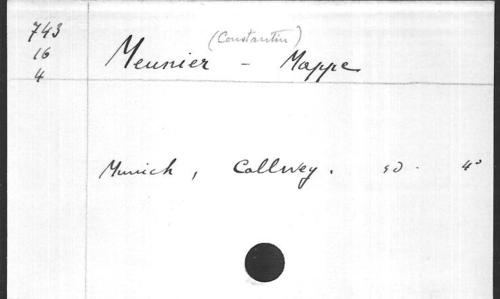 743
16
4
(Constantin)
Meunier - Mappe
Munich, Callwey. sd. 4°